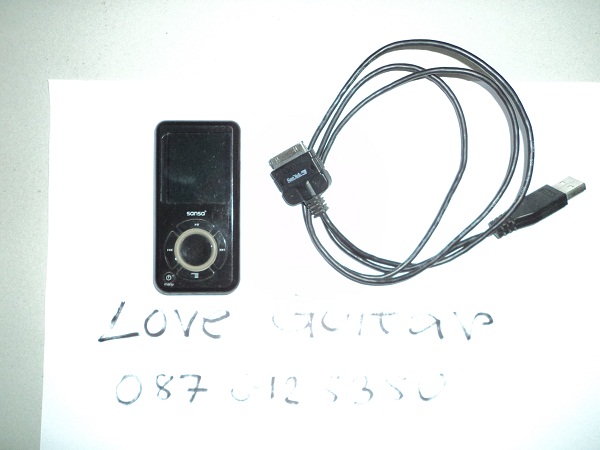 sansa
SanDisk
LOVE GUITAR
087 0128380